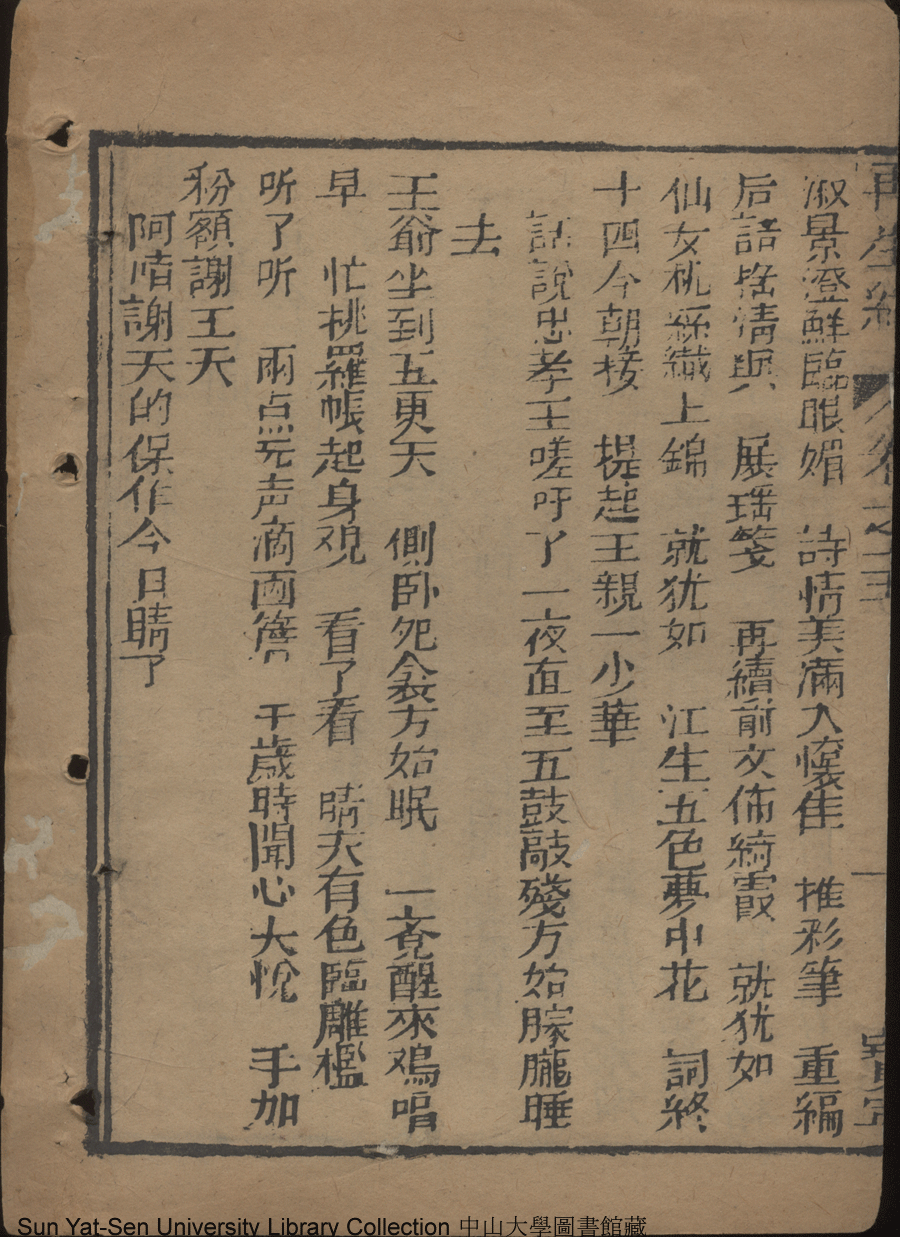 淑景澄鮮臨眼媚　詩情美滿入懷佳　推彩筆　重編
后語皆情與　展瑤箋　再續前文佈綺霞　就犹如
仙女机絲織上錦　就犹如　江生五色夢中花　詞終
十四今朝接　提起王親一少華
話說忠孝王嗟吁了一夜直至五鼓敲殘方始朦朧睡
去
王爺坐到五更天　側卧鸳衾方始眠　一竟醒來鳮唱
早　忙桃羅帳起身观　看了看　晴天有色臨雕檻
听了听　雨点无声滴画簷　千歲時聞心大悅　手加
粉額謝王天
阿唷謝天的保作今日睛了
Sun Yat-Sen University Library Collection 中山大學圖書館藏